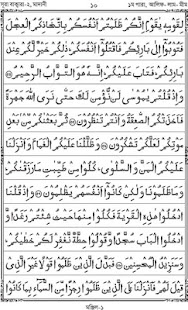 সূরা বাকারা-২, মাদানী ১০ ১ম পারা, আলিফ-লাম-মীম
لِقَوْمِهٖ يٰقَوْمِ اِنَّكُمْ ظَلَمْتُمْ اَنْفُسَكُمْ بِاتِّخَاذِكُمُ الْعِجْلَ
فَتُوْبُوْٓا اِلٰى بَارِئِكُمْ فَاقْتُلُوْٓا اَنْفُسَكُمْ ذٰلِكُمْ خَيْرٌ لَّكُمْ عِنْدَ
بَارِئِكُمْ فَتَابَ عَلَيْكُمْ اِنَّهٗ هُوَ التَّوَّابُ الرَّحِيْمُ ۝ وَاِذْ
قُلْتُمْ يٰمُوْسٰى لَنْ نُّؤْمِنَ لَكَ حَتّٰى نَرَى اللّٰهَ جَهْرَةً
فَاَخَذَتْكُمُ الصّٰعِقَةُ وَاَنْتُمْ تَنْظُرُوْنَ ۝ ثُمَّ بَعَثْنٰكُمْ مِّنْ
بَعْدِ مَوْتِكُمْ لَعَلَّكُمْ تَشْكُرُوْنَ ۝ وَظَلَّلْنَا عَلَيْكُمُ الْغَمَامَ وَاَنْزَلْنَا
عَلَيْكُمُ الْمَنَّ وَالسَّلْوٰى كُلُوْا مِنْ طَيِّبٰتِ مَا رَزَقْنٰكُمْ
وَمَا ظَلَمُوْنَا وَلٰكِنْ كَانُوْٓا اَنْفُسَهُمْ يَظْلِمُوْنَ ۝ وَاِذْ قُلْنَا
ادْخُلُوْا هٰذِهِ الْقَرْيَةَ فَكُلُوْا مِنْهَا حَيْثُ شِئْتُمْ رَغَدًا
وَّادْخُلُوا الْبَابَ سُجَّدًا وَّقُوْلُوْا حِطَّةٌ نَّغْفِرْ لَكُمْ خَطٰيٰكُمْ
وَسَنَزِيْدُ الْمُحْسِنِيْنَ ۝ فَبَدَّلَ الَّذِيْنَ ظَلَمُوْا قَوْلًا غَيْرَ الَّذِيْ
قِيْلَ لَهُمْ فَاَنْزَلْنَا عَلَى الَّذِيْنَ ظَلَمُوْا رِجْزًا مِّنَ السَّمَآءِ بِمَا كَانُوْا
মঞ্জিল-১